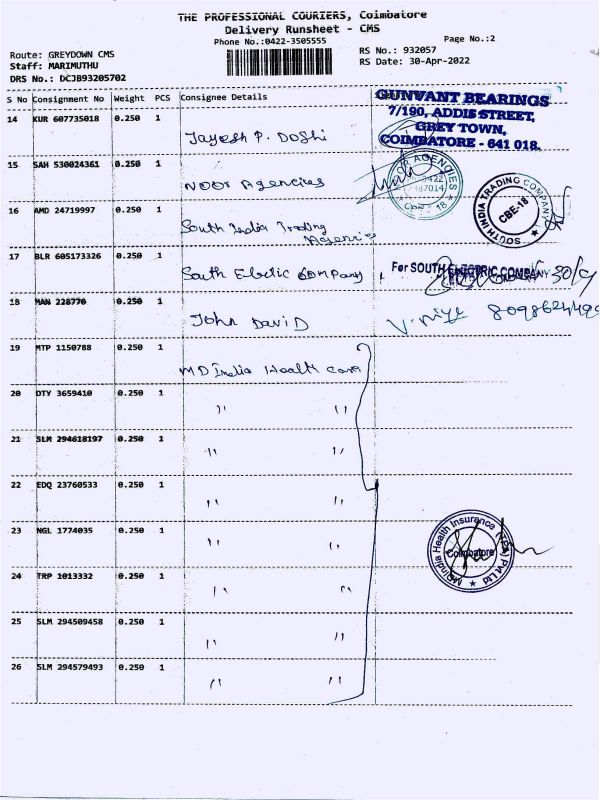 THE PROFESSIONAL COURIERS, Coimbatore
Delivery Runsheet - CMS
Phone No.:0422-3505555
Page No.:2
Route: GREYDOWN CMS
RS No.: 932057
Staff: MARIMUTHU
RS Date: 30-Apr-2022
DRS No.: DCJB93205702
S No Consignment No Weight PCS Consignee Details
GUNVANT BEARINGS
7/190, ADDIS STREET,
GREY TOWN,
COIMBATORE - 641 018.
14 KUR 607735018 0.250 1 Jayesh P. Doshi
15 SAH 530024361 0.250 1 Noor Agencies
NOOR AGENCIES
CBE - 18
16 AMD 24719997 0.250 1 South India Trading
SOUTH INDIA TRADING COMPANY
CBE-18
17 BLR 605173326 0.250 1 South Electic Company
For SOUTH ELECTRIC COMPANY
30/4
18 MAN 228770 0.250 1 John David
19 MTP 1150788 0.250 1 MD India Health Care
20 OTY 3659410 0.250 1 " "
21 SLM 294618197 0.250 1 " "
22 EDQ 23760533 0.250 1 " "
23 NGL 1774035 0.250 1 " "
MDIndia Health Insurance (TPA) Pvt Ltd
Coimbatore
24 TRP 1013332 0.250 1 " "
25 SLM 294509458 0.250 1 " "
26 SLM 294579493 0.250 1 " "